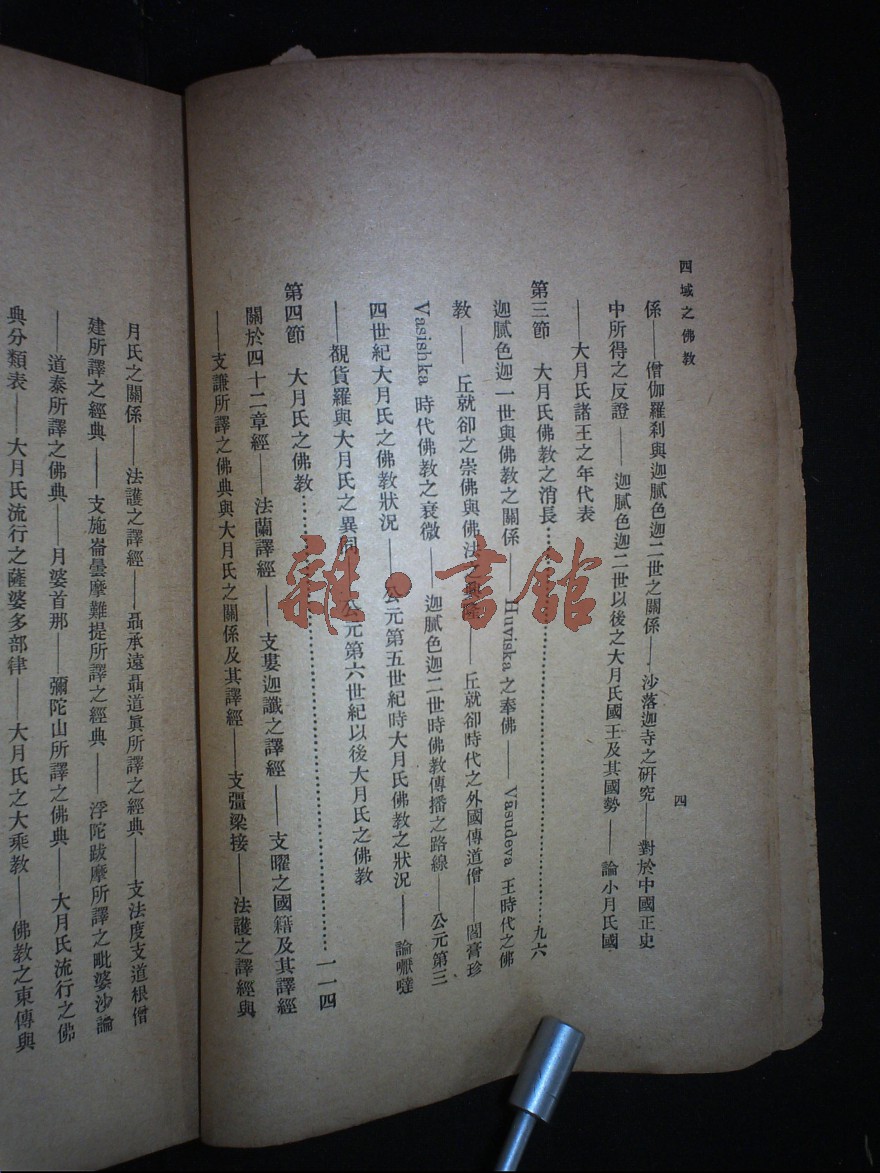 西域之佛教
四
係——僧伽羅刹與迦膩色迦二世之關係——沙落迦寺之研究——對於中國正史
中所得之反證——迦膩色迦二世以後之大月氏國王及其國勢——論小月氏國
——大月氏諸王之年代表
第三節 大月氏佛教之消長……九六
迦膩色迦一世與佛教之關係——Huviska之奉佛——Vāsudeva王時代之佛
教——丘就卻之崇佛與佛法之——丘就卻時代之外國傳道僧——閻膏珍
Vasishka時代佛教之衰微——迦膩色迦二世時佛教傳播之路線——公元第三
四世紀大月氏之佛教狀況——公元第五世紀時大月氏佛教之狀況——論嚈噠
——覩貨羅與大月氏之異同——公元第六世紀以後大月氏之佛教
第四節 大月氏之佛教……一一四
關於四十二章經——法蘭譯經——支婁迦讖之譯經——支曜之國籍及其譯經
——支謙所譯之佛典與大月氏之關係及其譯經——支彊梁接——法護之譯經與
月氏之關係——法護之譯經——聶承遠聶道眞所譯之經典——支法度支道根僧
建所譯之經典——支施崙曇摩難提所譯之經典——浮陀跋摩所譯之毗婆沙論
——道泰所譯之佛典——月婆首那——彌陀山所譯之佛典——大月氏流行之佛
典分類表——大月氏流行之薩婆多部律——大月氏之大乘教——佛教之東傳與
雜·書館